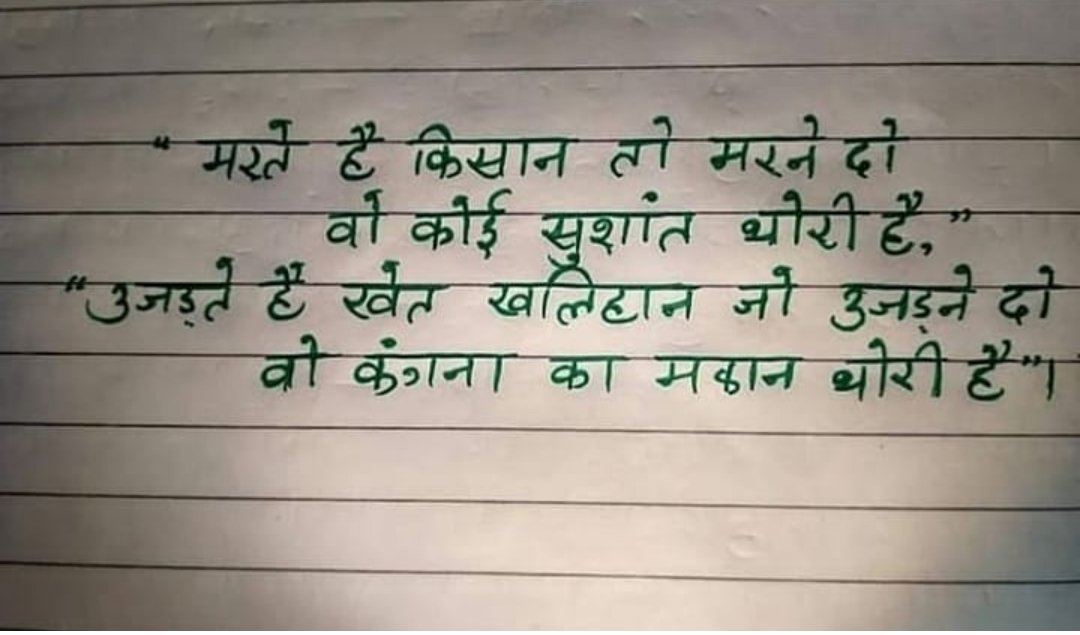 “ मरते है किसान तो मरने दो
वो कोई सुशांत थोरी है,”
“उजड़ते हैं खेत खलिहान जो उजड़ने दो
वो कंगना का मकान थोरी है”।